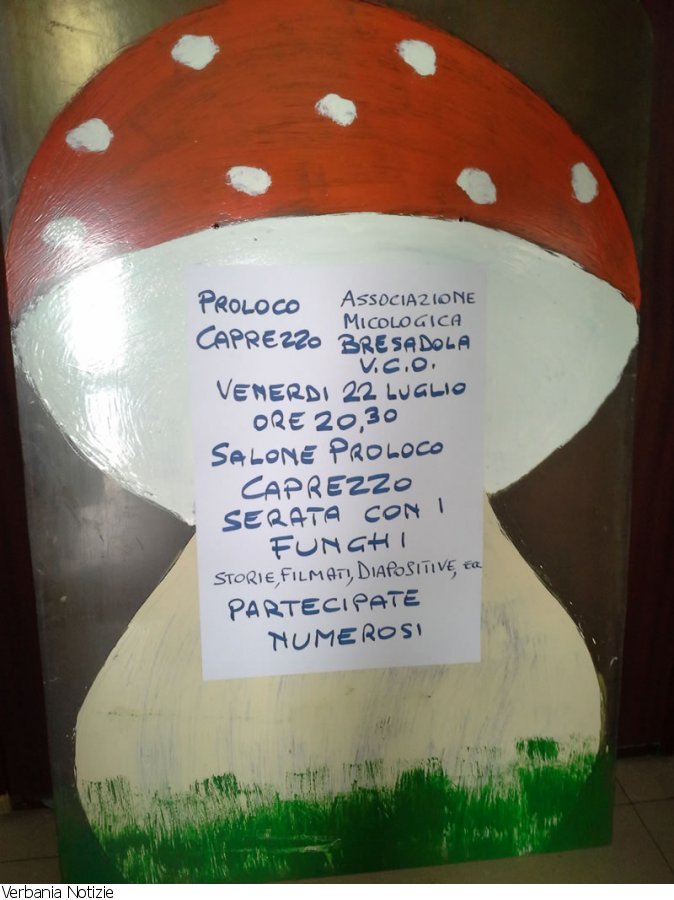 PROLOCO
CAPREZZO
ASSOCIAZIONE
MICOLOGICA
BRESADOLA
V.C.O.
VENERDI 22 LUGLIO
ORE 20,30
SALONE PROLOCO
CAPREZZO
SERATA CON I
FUNGHI
STORIE, FILMATI, DIAPOSITIVE,
PARTECIPATE
NUMEROSI
Verbania Notizie